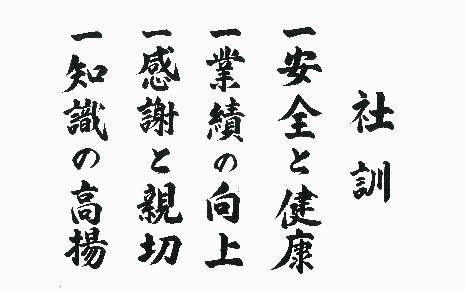 社訓
一安全と健康
一業績の向上
一感謝と親切
一知識の高揚